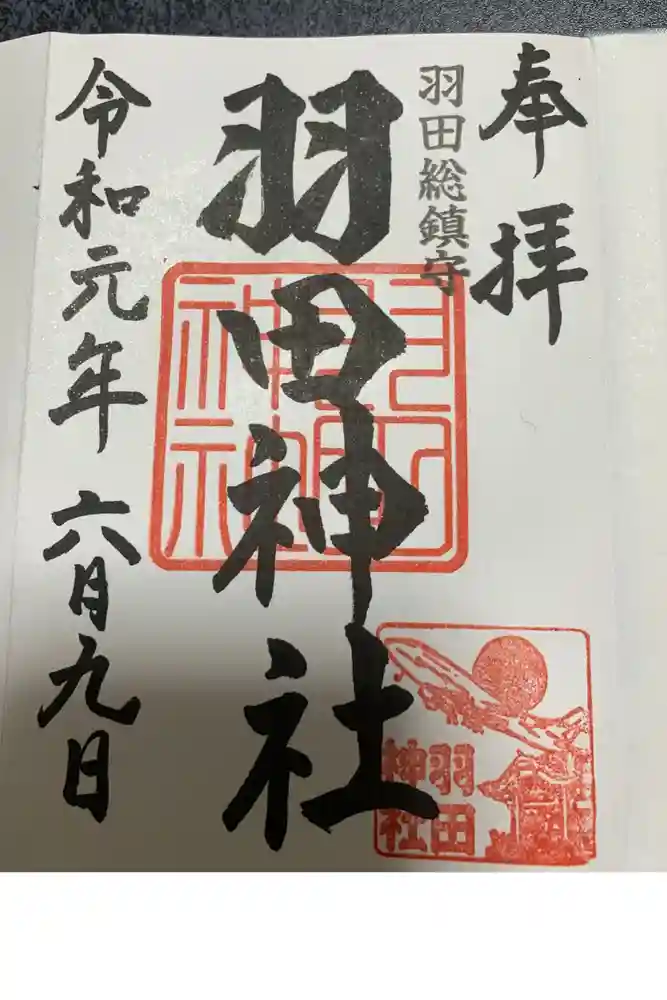 奉拝
羽田総鎮守
羽田神社
羽田神社
令和元年六月九日
羽田
神社